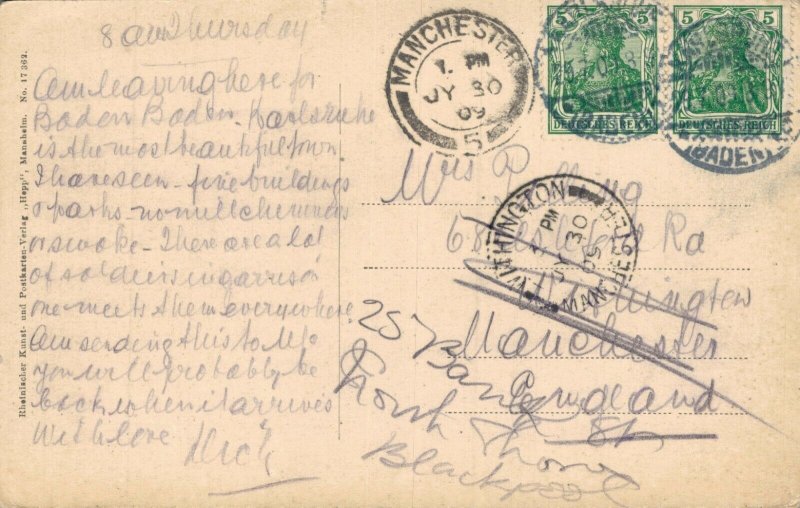 8 am Thursday
Am leaving here for
Baden Baden. Karlsruhe
is the most beautiful town
I have seen - fine buildings
& parks - no mill chimneys
or smoke - There are a lot
of soldiers in garrison
one meets them everywhere
Am sending this to M/c
you will probably be
back when it arrives
With love
Dick
Rheinischer Kunst- und Postkarten-Verlag „Hepp", Mannheim. No. 17 362.
MANCHESTER
1. PM
JY 30
09
5
5 5
DEUTSCHES REICH
5 5
DEUTSCHES REICH
(BADEN)
WITHINGTON
PM
JY 30
09
MANCHESTER
Mrs
68
Rd
Withington
Manchester
England
25 Bank St
North Shore
Blackpool